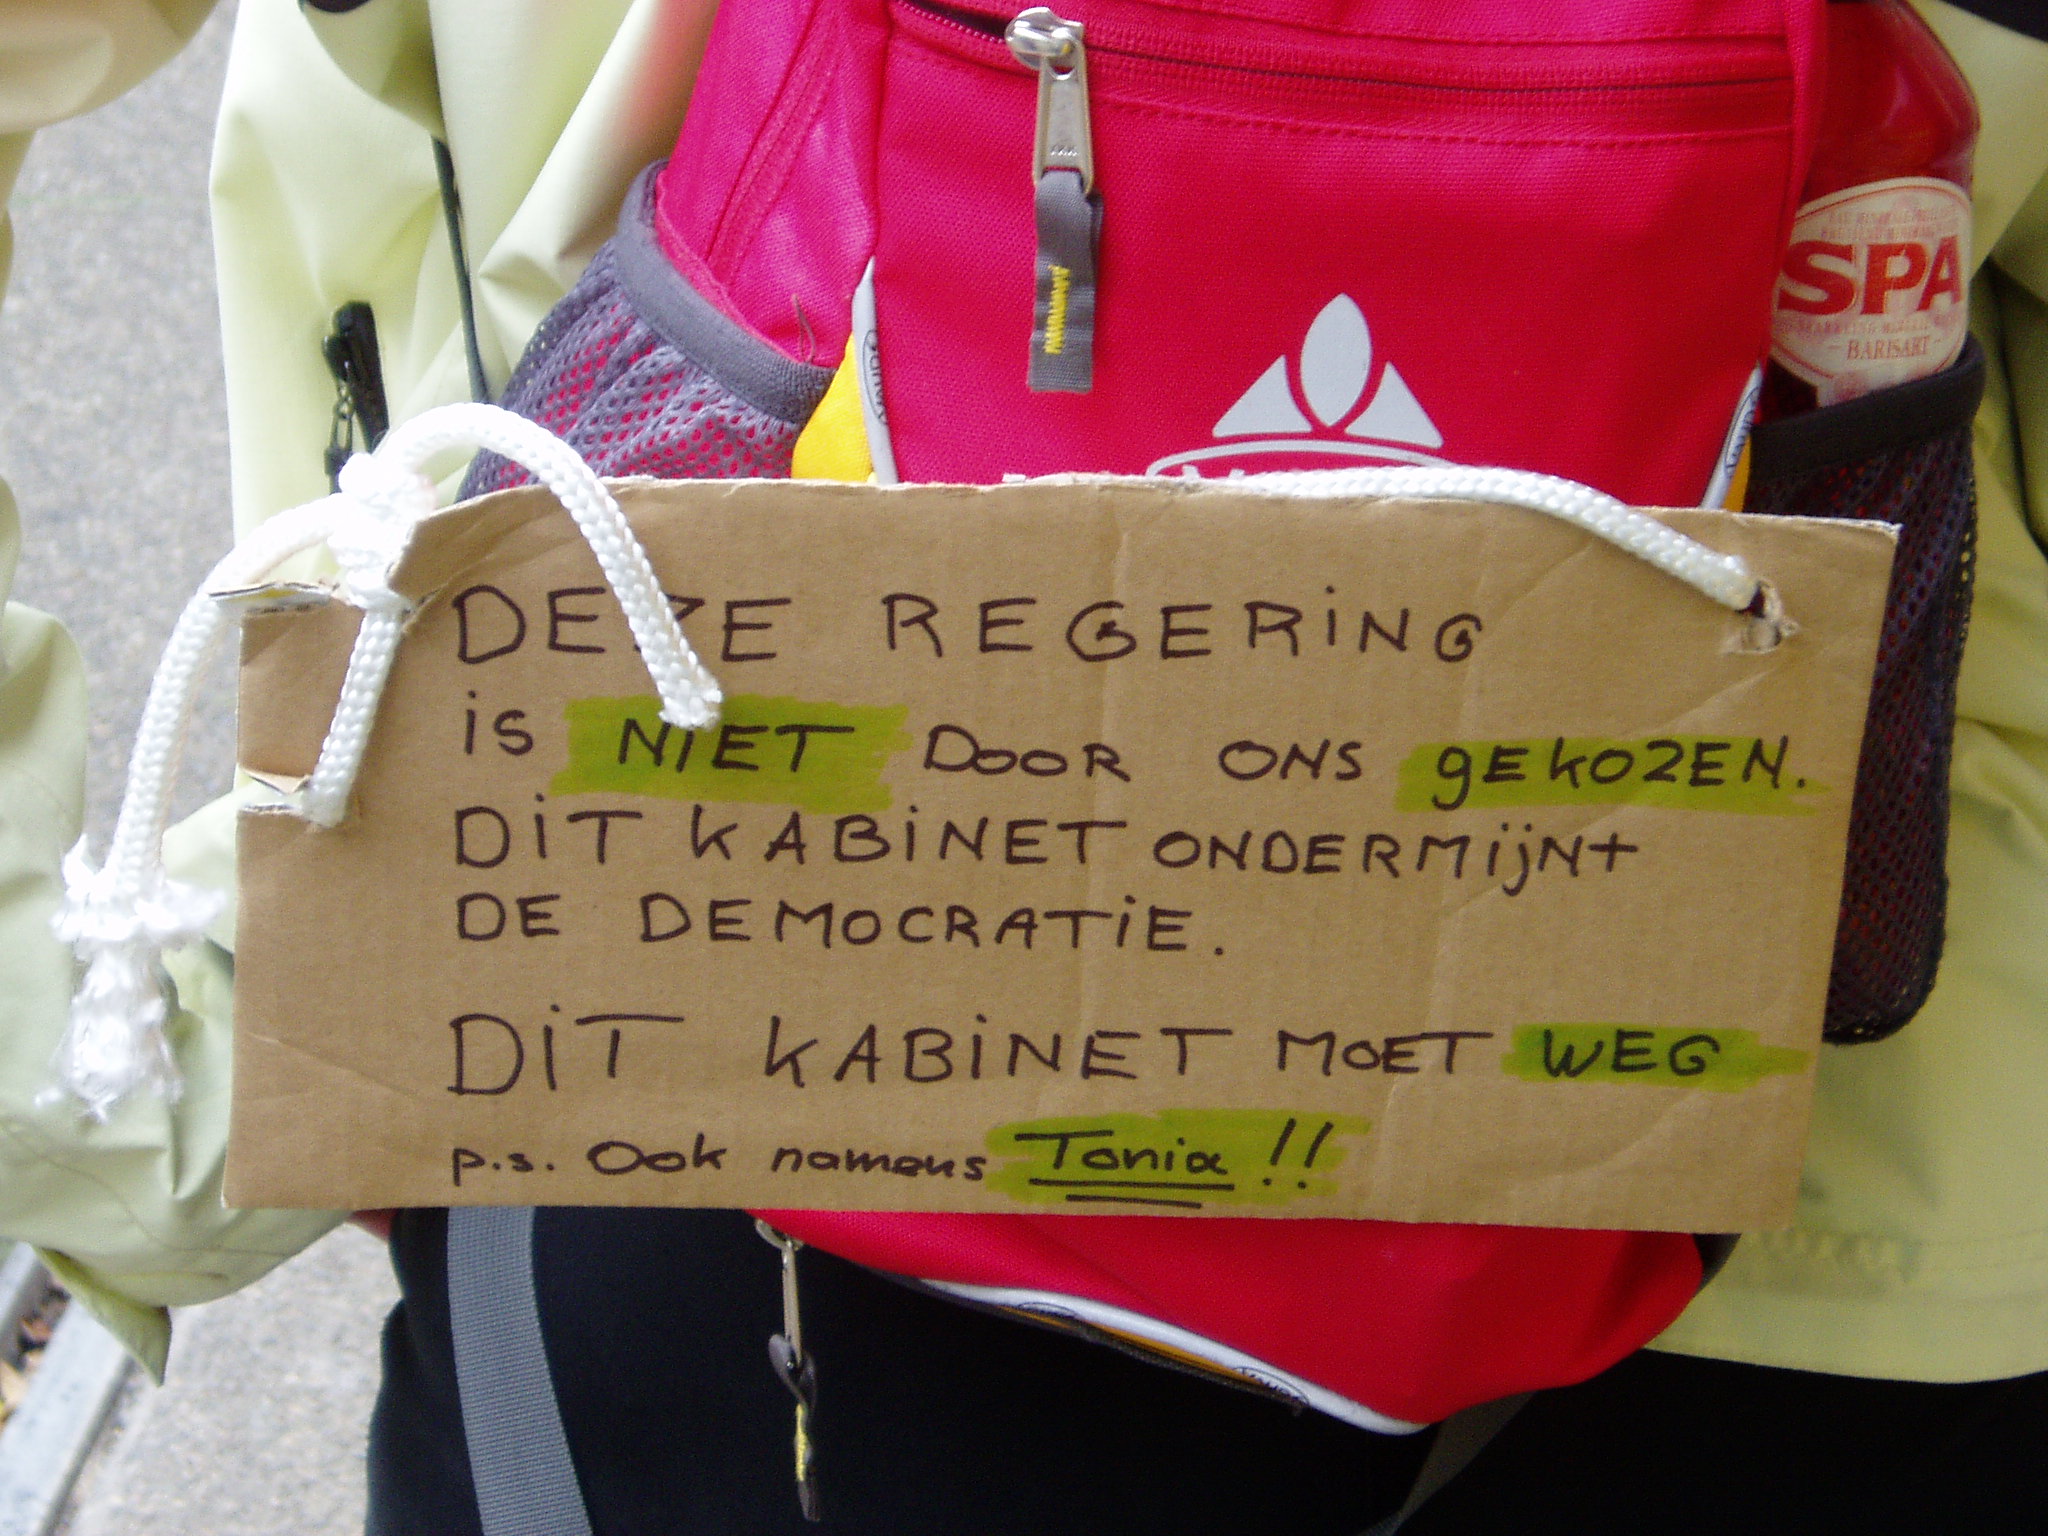 SPA
BARISART
DEZE REGERING
is NiET DOOR ONS gEKOZEN.
DiT KABiNET ONDERMijNt
DE DEMOCRATiE.
DiT KABiNET MOET WEG
p.s. Ook namens Tonia !!